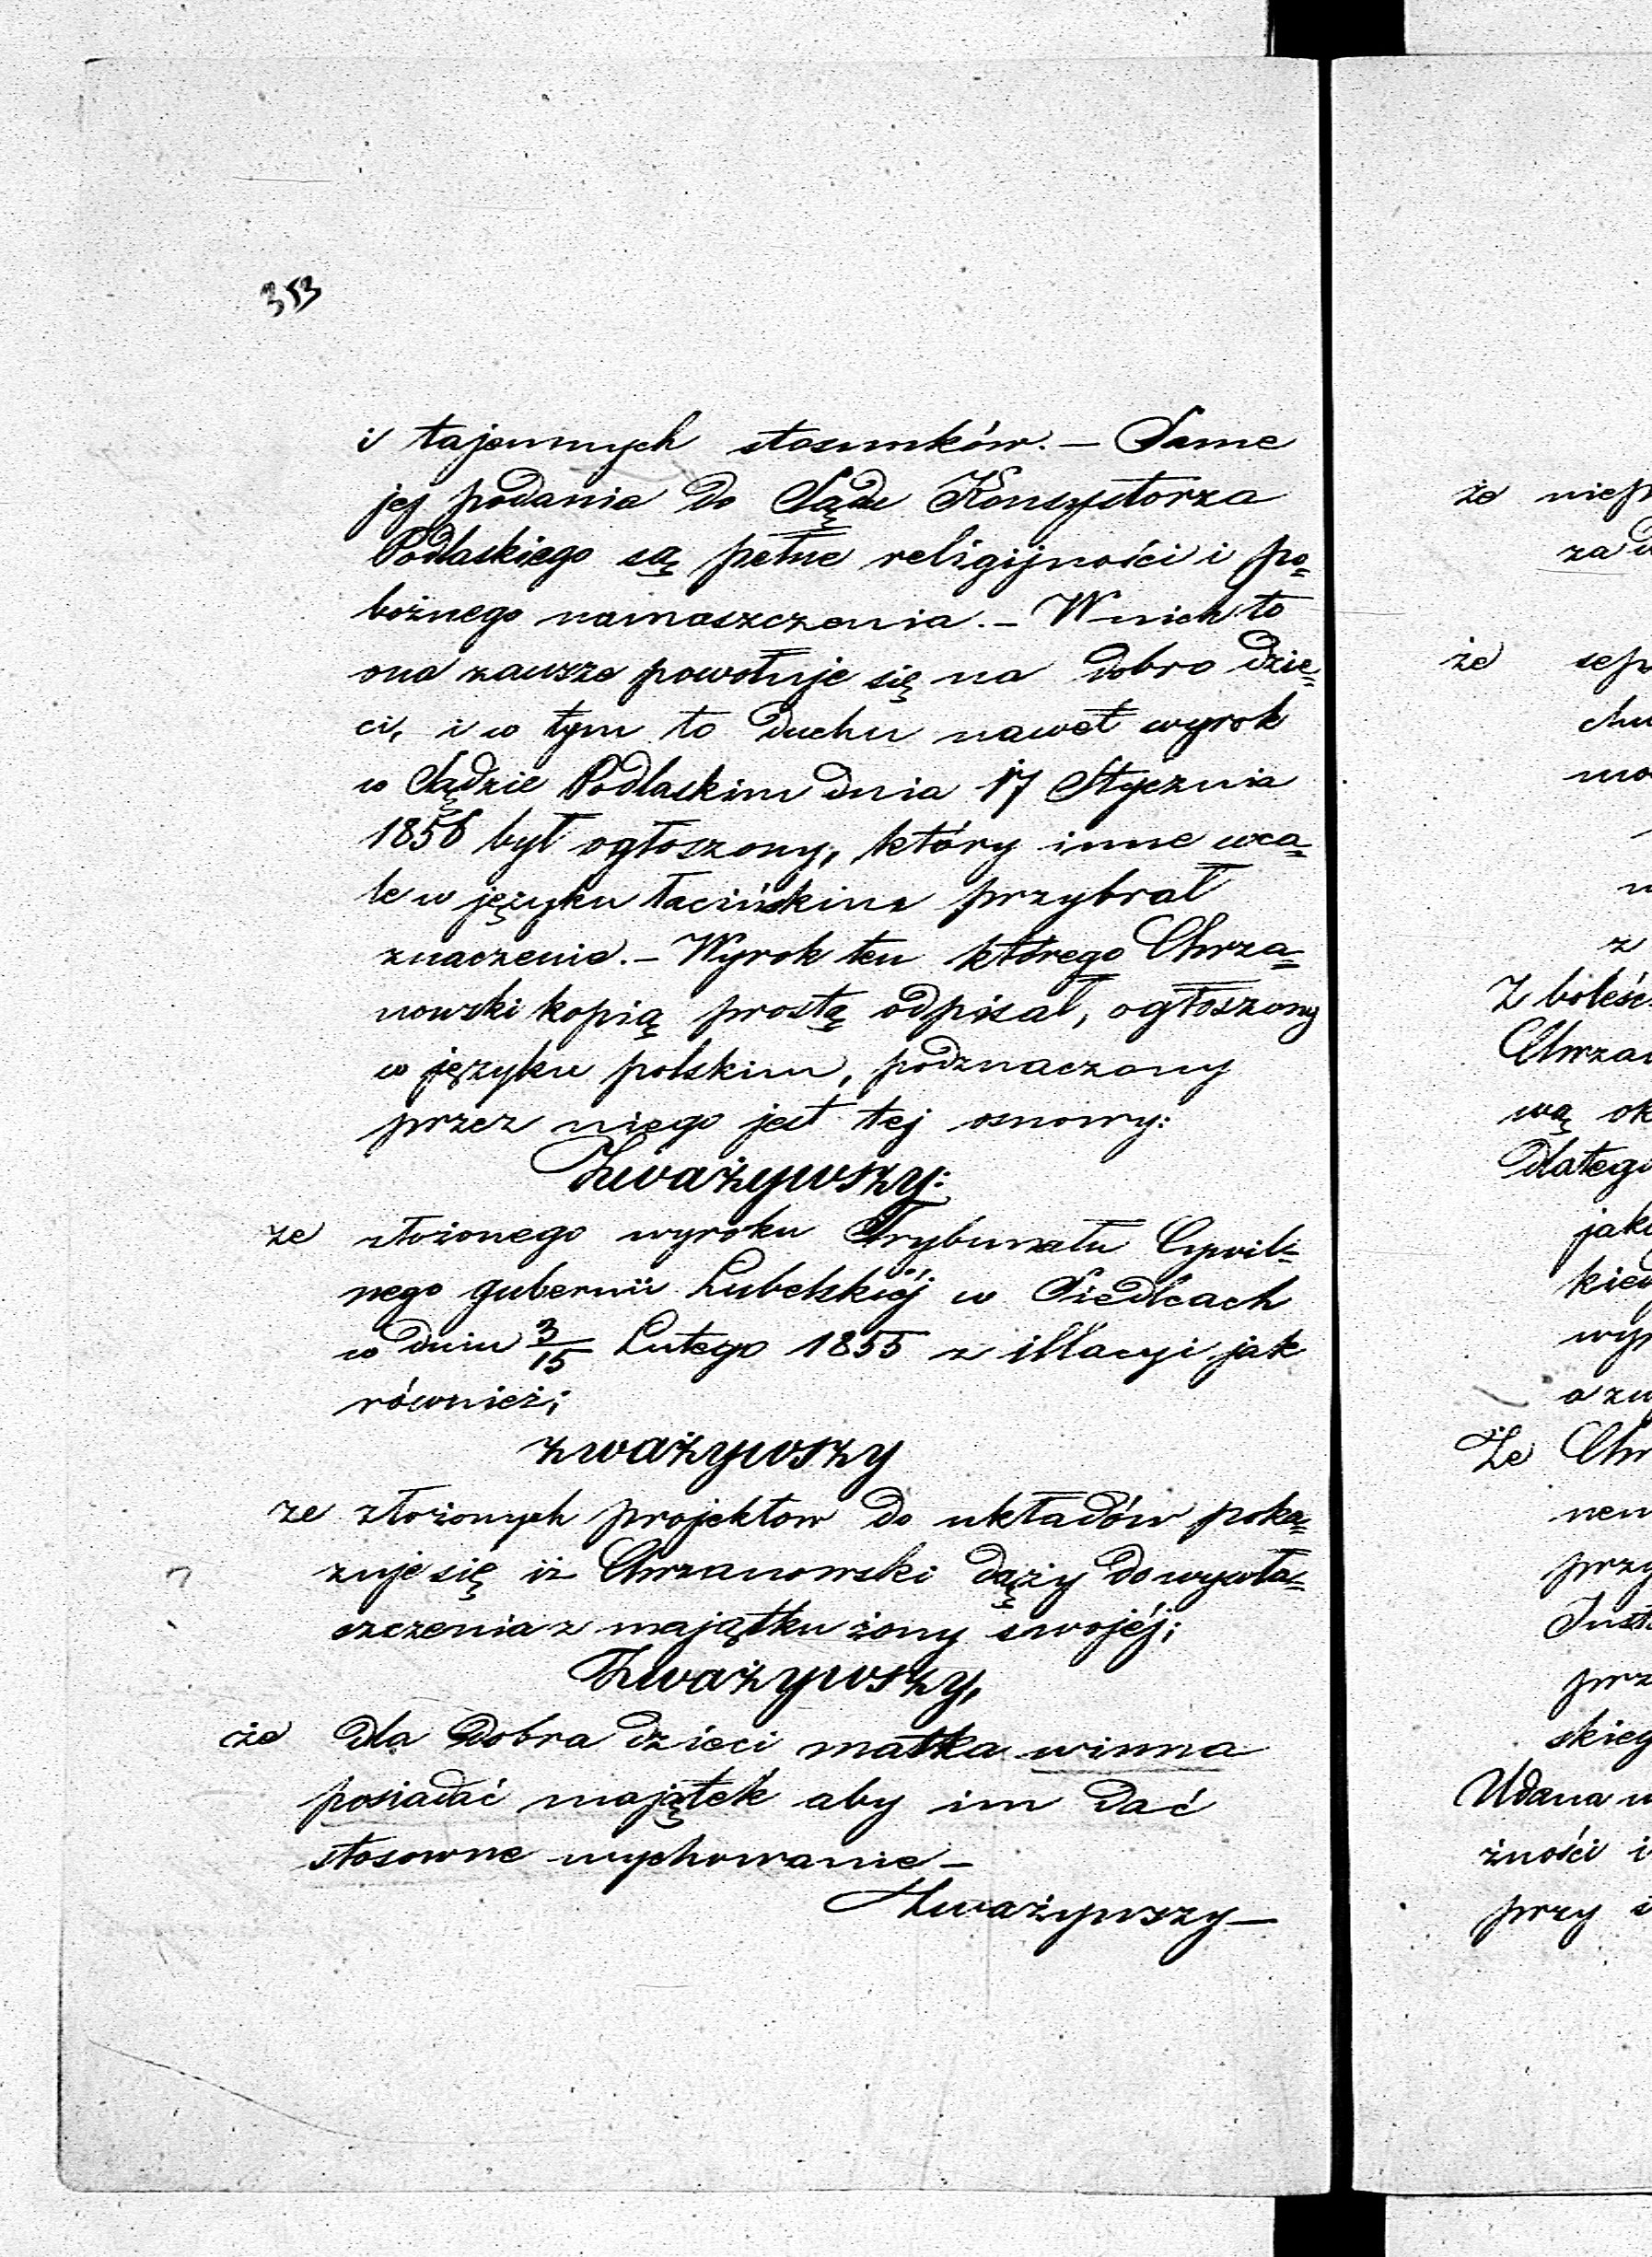 353
i tajemnych stosunków. — Same
jej podania do Sądu Konsystorza
Podlaskiego są pełne religijności i po=
bożnego namaszczenia. — W nich to
ona zawsze powołuje się na dobro dzie=
ci, i w tym to duchu nawet wyrok
w Sądzie Podlaskim dnia 17 Stycznia
1856 był ogłoszony, który inne wca=
le w języku łacińskim przybrał
znaczenie. — Wyrok ten którego Chrza=
nowski kopią prostą odpisał, ogłoszony
w języku polskim, podznaczony
przez niego jest tej osnowy:
Zważywszy:
ze złożonego wyroku Trybunału Cywil=
nego gubernii Lubelskiéj w Siedlcach
w dniu 3/15 Lutego 1855 z illacyi jak
również;
zważywszy
ze złożonych projektow do układów poka=
zuje się iż Chrzanowski dąży do wywła=
szczenia z majątku żony swojéj;
Zważywszy,
że dla dobra dzieci matka winna
posiadać majątek aby im dać
stosowne wychowanie —
Zważywszy —
że
że
Z
Ze Chr
przy
żności i
przy